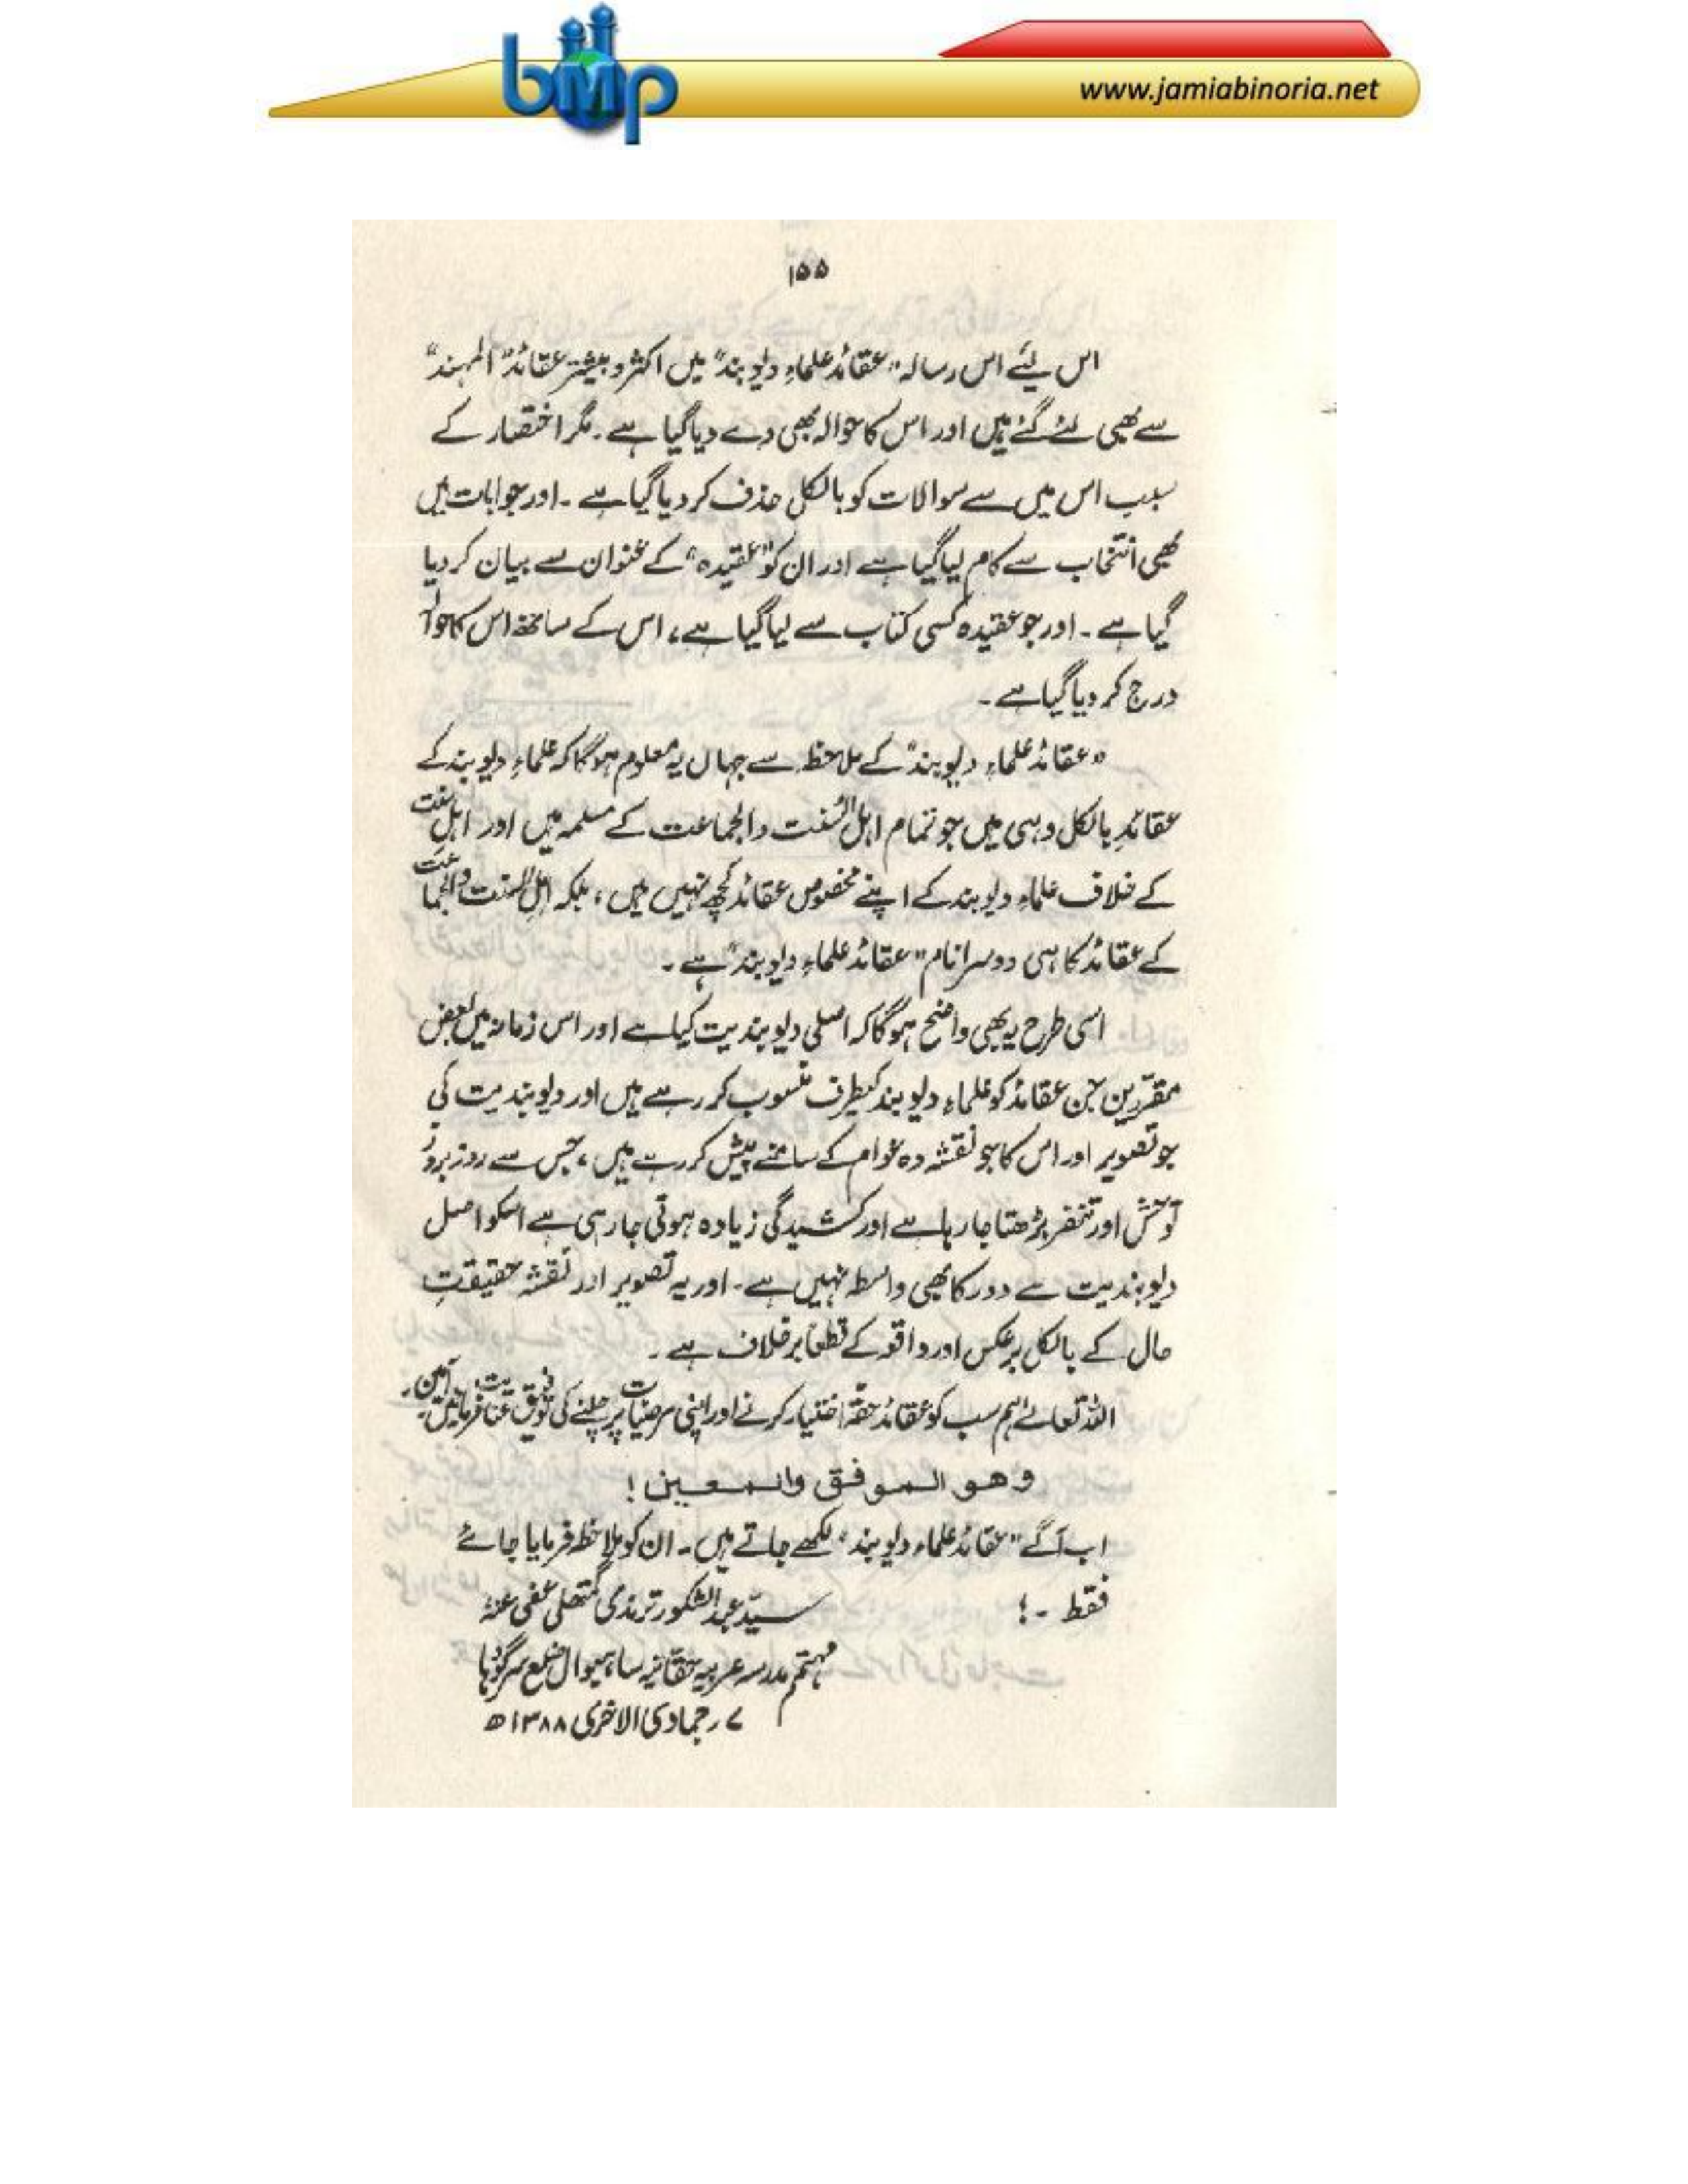 bmp
www.jamiabinoria.net
۱۵۵
اس لئے اس رسالہ "عقائد علماءِ دیوبند" میں اکثر و بیشتر عقائد "المہند"
سے بھی لئے گئے ہیں اور اس کا حوالہ بھی دے دیا گیا ہے۔ مگر اختصار کے
سبب اس میں سے سوالات کو بالکل حذف کر دیا گیا ہے۔ اور جوابات میں
بھی انتخاب سے کام لیا گیا ہے اور ان کو "عقیدہ" کے عنوان سے بیان کر دیا
گیا ہے۔ اور جو عقیدہ کسی کتاب سے لیا گیا ہے، اس کے ساتھ اس کا حوالہ
درج کر دیا گیا ہے۔
"عقائد علماءِ دیوبند" کے ملاحظہ سے جہاں یہ معلوم ہوگا کہ علماءِ دیوبند کے
عقائد بالکل وہی ہیں جو تمام اہل السنت والجماعت کے مسلمہ ہیں اور اہل سنت
کے خلاف علماءِ دیوبند کے اپنے مخصوص عقائد کچھ نہیں ہیں، بلکہ اہل السنت والجماعت
کے عقائد کا ہی دوسرا نام "عقائد علماءِ دیوبند" ہے۔
اسی طرح یہ بھی واضح ہوگا کہ اصلی دیوبندیت کیا ہے اور اس زمانہ میں بعض
مقررین جن عقائد کو علماءِ دیوبند کیطرف منسوب کر رہے ہیں اور دیوبندیت کی
جو تصویر اور اس کا جو نقشہ وہ عوام کے سامنے پیش کر رہے ہیں، جس سے روز بروز
توحش اور تنفر بڑھتا جا رہا ہے اور کشیدگی زیادہ ہوتی جا رہی ہے اسکو اصل
دیوبندیت سے دور کا بھی واسطہ نہیں ہے۔ اور یہ تصویر اور نقشہ حقیقتِ
حال کے بالکل برعکس اور واقعہ کے قطعاً برخلاف ہے۔
اللہ تعالےٰ ہم سب کو عقائد حقّہ اختیار کرنے اور اپنی مرضیات پر چلنے کی توفیق عنایت فرمائیں۔ آمین۔
وهو الموفق والمعين!
اب آگے "عقائد علماءِ دیوبند" لکھے جاتے ہیں۔ ان کو ملاحظہ فرمایا جائے
فقط ۔! سیّد عبدالشکور ترمذی گمتھلی عفی عنہٗ
مہتمم مدرسہ عربیہ حقانیہ ساہیوال ضلع سرگودہا
۷ رجمادی الاخریٰ ۱۳۸۸ھ